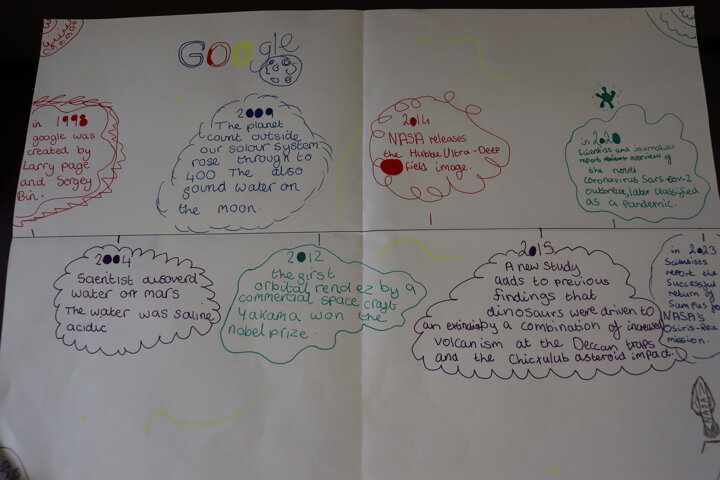 Google
in 1998
google was
created by
Larry page
and Sergey
Bin.
2009
The planet
count outside
our solour system
rose through to
400 The also
gound water on
the moon.
2014
NASA releases
the Hubble Ultra-Deep
Field image.
in 2020
Scientist and journalists
report overviews of
the novel
coronavirus Sars-cov-2
outbreak, later classified
as a Pandemic.
2004
Scientist disoverd
water on mars
The water was saline
acidic
2012
the first
orbital rendez by a
commercial space craft
Yakama won the
nobel prize.
2015
A new study
adds to previous
findings that
dinosaurs were driven to
an extinction by a combination of increased
volcanism at the Deccan traps
and the Chicxulub asteroid impact.
in 2023
Scientists
report the
Successful
return of
Samples
NASA's
Osiris-Rex
mission.
NASA